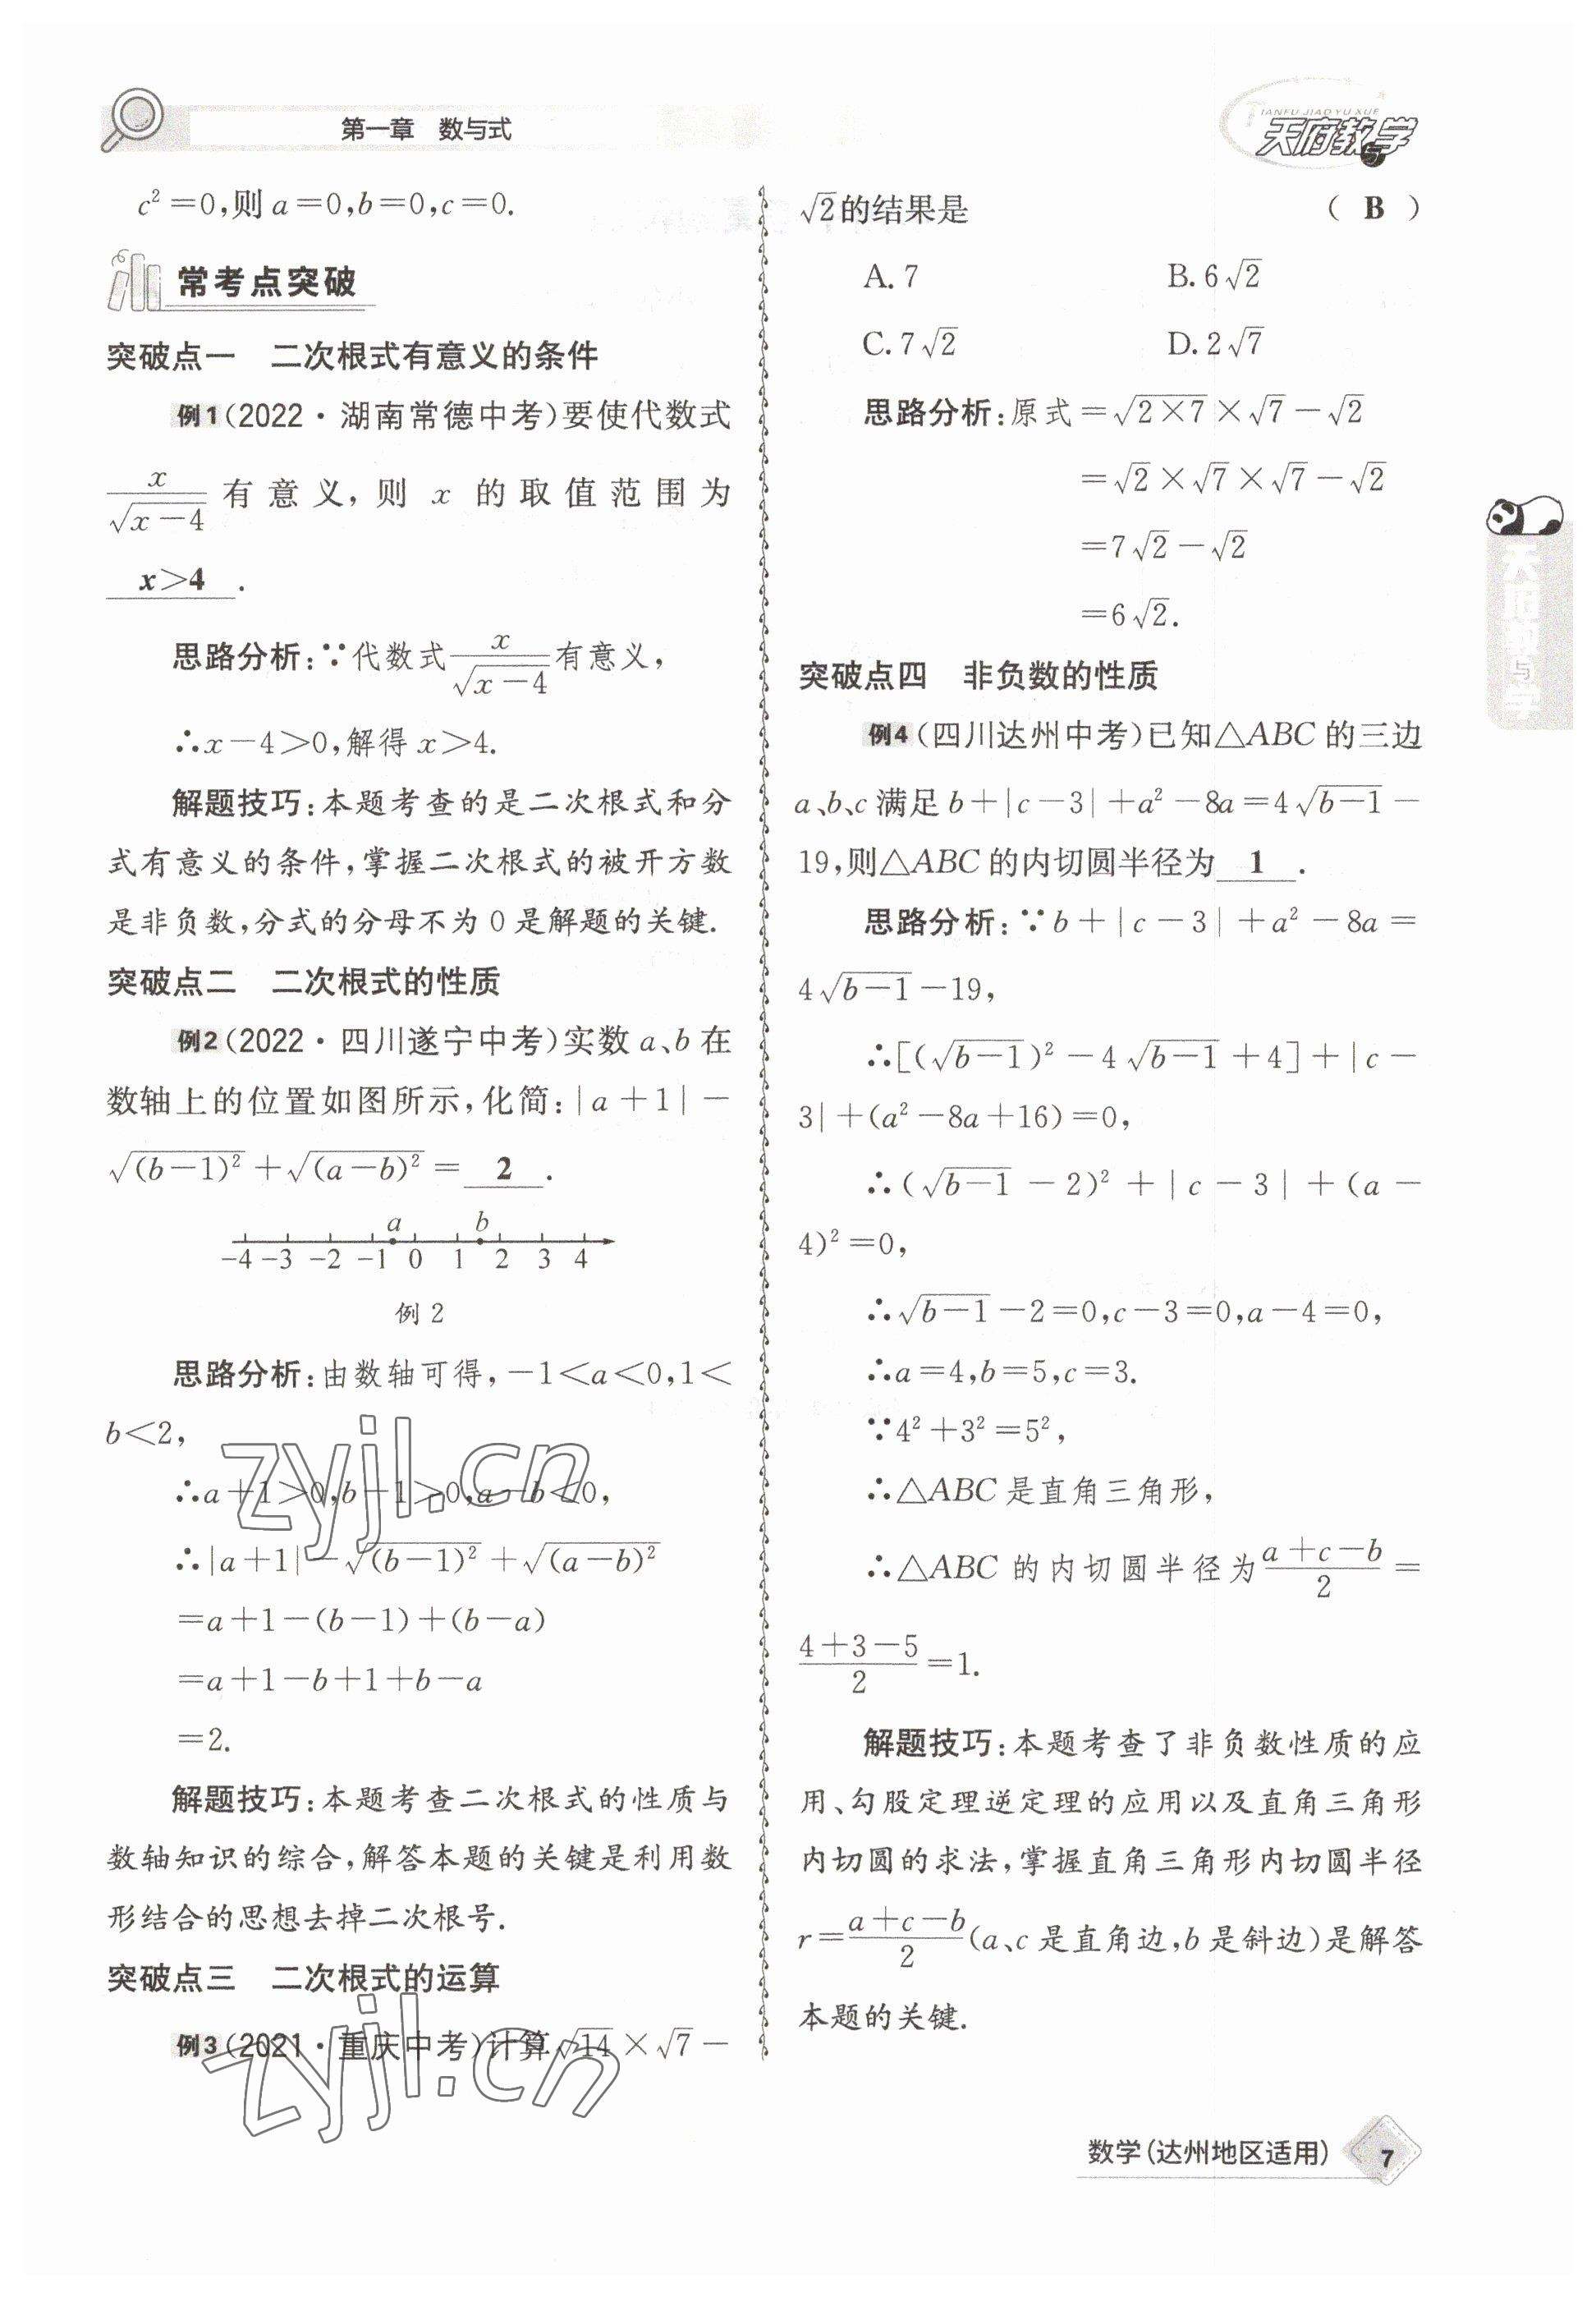 第一章 数与式
TIANFU JIAO YU XUE
天府教与学
c²=0,则a=0,b=0,c=0.
常考点突破
突破点一 二次根式有意义的条件
例1(2022·湖南常德中考)要使代数式
x/√(x-4) 有意义,则 x 的取值范围为
x>4 .
思路分析:∵代数式 x/√(x-4) 有意义,
∴x-4>0,解得x>4.
解题技巧:本题考查的是二次根式和分
式有意义的条件,掌握二次根式的被开方数
是非负数,分式的分母不为0是解题的关键.
突破点二 二次根式的性质
例2(2022·四川遂宁中考)实数a、b在
数轴上的位置如图所示,化简:|a+1|-
√(b-1)²+√(a-b)²= 2 .
a b
-4 -3 -2 -1 0 1 2 3 4
例2
思路分析:由数轴可得,-1<a<0,1<
b<2,
∴a+1>0,b-1>0,a-b<0,
∴|a+1|-√(b-1)²+√(a-b)²
=a+1-(b-1)+(b-a)
=a+1-b+1+b-a
=2.
解题技巧:本题考查二次根式的性质与
数轴知识的综合,解答本题的关键是利用数
形结合的思想去掉二次根号.
突破点三 二次根式的运算
例3(2021·重庆中考)计算√14×√7-
√2的结果是 ( B )
A. 7 B. 6√2
C. 7√2 D. 2√7
思路分析:原式=√(2×7)×√7-√2
=√2×√7×√7-√2
=7√2-√2
=6√2.
突破点四 非负数的性质
例4(四川达州中考)已知△ABC的三边
a、b、c满足b+|c-3|+a²-8a=4√(b-1)-
19,则△ABC的内切圆半径为 1 .
思路分析:∵b+|c-3|+a²-8a=
4√(b-1)-19,
∴[(√(b-1))²-4√(b-1)+4]+|c-
3|+(a²-8a+16)=0,
∴(√(b-1)-2)²+|c-3|+(a-
4)²=0,
∴√(b-1)-2=0,c-3=0,a-4=0,
∴a=4,b=5,c=3.
∵4²+3²=5²,
∴△ABC是直角三角形,
∴△ABC的内切圆半径为(a+c-b)/2=
(4+3-5)/2=1.
解题技巧:本题考查了非负数性质的应
用、勾股定理逆定理的应用以及直角三角形
内切圆的求法,掌握直角三角形内切圆半径
r=(a+c-b)/2(a、c是直角边,b是斜边)是解答
本题的关键.
天府教与学
zyjl.cn
zyjl.cn
数学(达州地区适用) 7